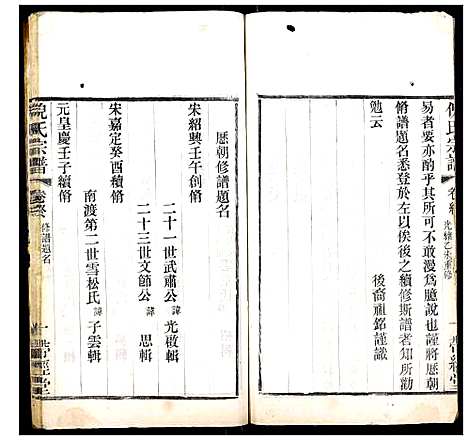 易者要亦酌乎其所不可不敢漫為臆說也謹將歷朝
脩譜題名悉登於左以俟後之續修斯譜者知所勸
勉云
後裔祖銘謹識
倪氏宗譜
歷朝修譜題名
宋紹興壬午創脩
二十一世武肅公諱光啟輯
二十三世文節公諱思輯
宋嘉定癸酉續脩
南渡第二世雪松氏諱子雲輯
元皇慶壬子續脩
倪氏宗譜
卷終
修譜題名
一
經